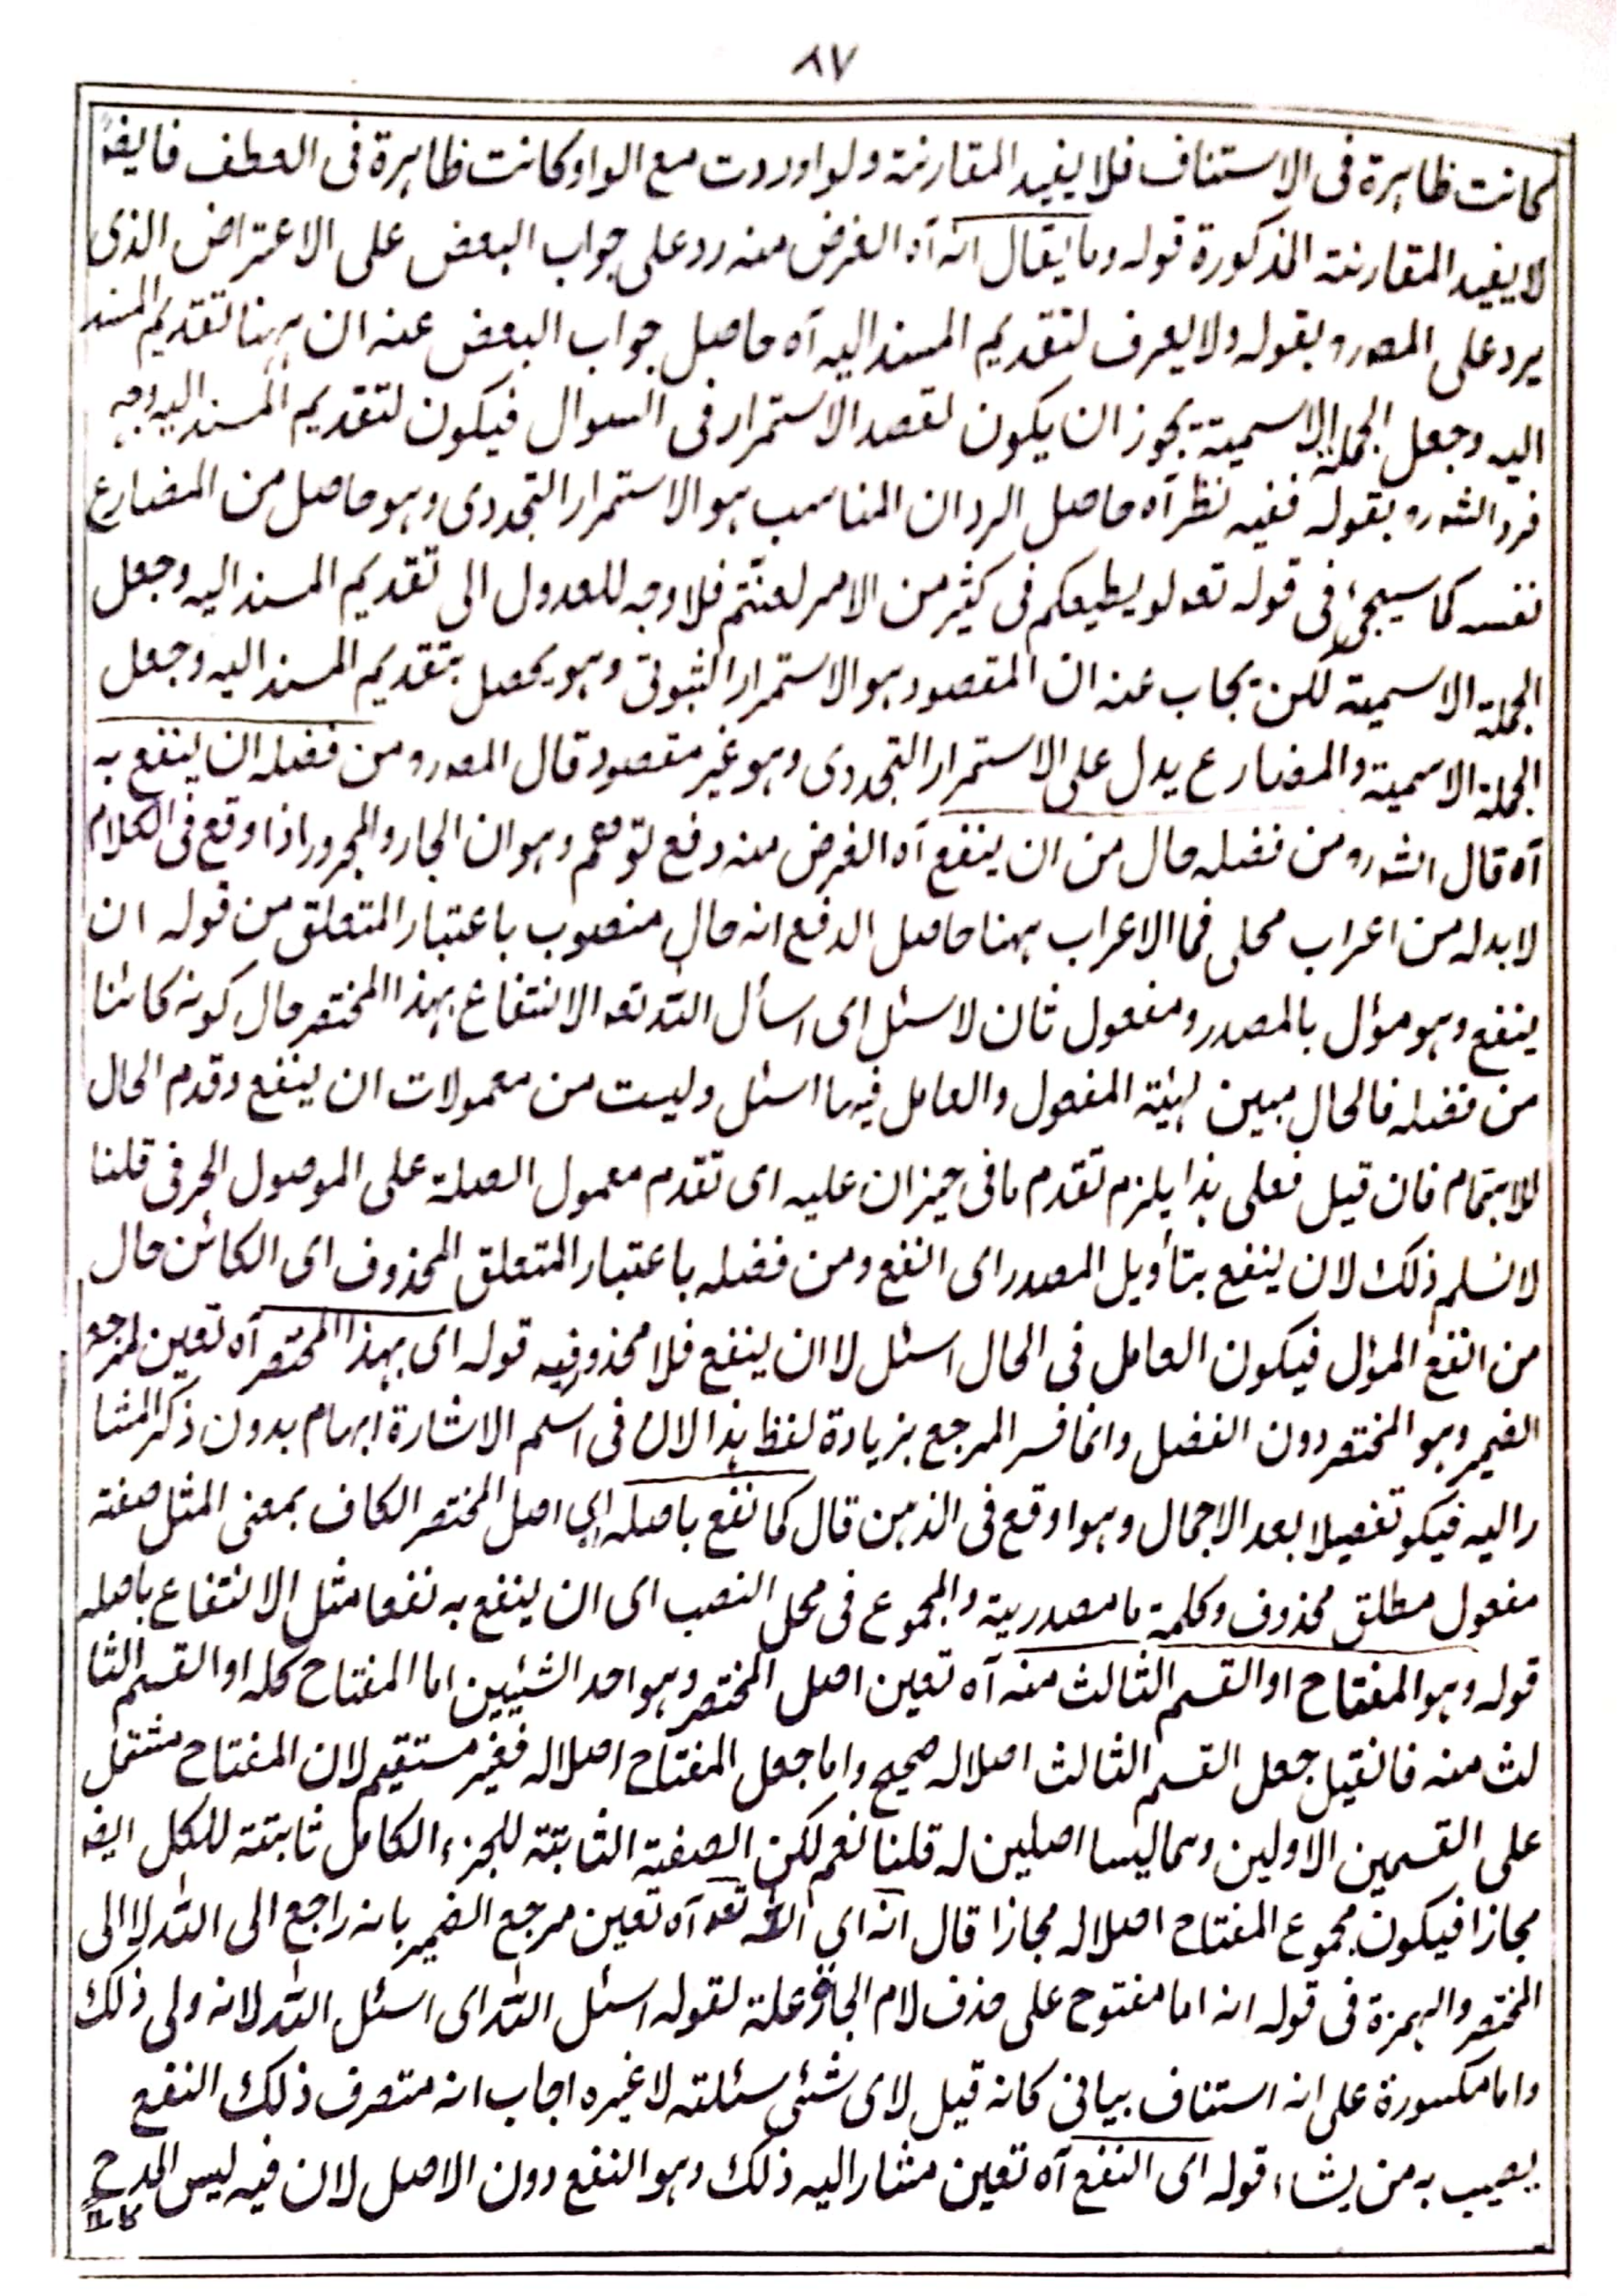 ٨٧
كانت ظاهرة فى الاستناف فلا يفيد المقارنة ولو اوردت مع الواو كانت ظاهرة فى العطف فايضا
لا يفيد المقارنة المذكورة قوله وما يقال انه آه الغرض منه رد على جواب البعض على الاعتراض الذى
يرد على المصرو بقوله ولا يعرف لتقديم المسند اليه آه حاصل جواب البعض عنه ان ههنا تقديم المسند
اليه وجعل الجملة الاسمية يجوز ان يكون لقصد الاستمرار فى السوال فيكون لتقديم المسند اليه وجه
فرد الشرو بقوله ففيه نظر آه حاصل الرد ان المناسب هو الاستمرار التجددى وهو حاصل من المضارع
نفسه كما سيجئ فى قوله تعو لو يطيعكم فى كثير من الامر لعنتم فلا وجه للعدول الى تقديم المسند اليه وجعل
الجملة الاسمية لكن يجاب عنه ان المقصود هو الاستمرار الثبوتى وهو يحصل بتقديم المسند اليه وجعل
الجملة الاسمية والمضارع يدل على الاستمرار التجددى وهو غير مقصود قال المصرو من فضله ان ينفع به
آه قال الشرو من فضله حال من ان ينفع آه الغرض منه دفع توهم وهو ان الجار والمجرور اذا وقع فى الكلام
لا بد له من اعراب محلى فما الاعراب ههنا حاصل الدفع انه حال منصوب باعتبار المتعلق من قوله ان
ينفع وهو مؤل بالمصدر ومفعول ثان لاسئل اى اسأل الله تعو الانتفاع بهذا المختصر حال كونه كائنا
من فضله فالحال مبين لهيئة المفعول والعامل فيها اسئل وليست من معمولات ان ينفع وقدم الحال
للاهتمام فان قيل فعلى هذا يلزم تقدم ما فى حيز ان عليه اى تقدم معمول الصلة على الموصول الحرفى قلنا
لا نسلم ذلك لان ينفع بتأويل المصدر اى النفع ومن فضله باعتبار المتعلق المحذوف اى الكائن حال
من النفع المؤل فيكون العامل فى الحال اسئل لا ان ينفع فلا محذور فيه قوله اى بهذا المختصر آه تعين لمرجع
الضمير وهو المختصر دون الفضل وانما فسر المرجع بزيادة لفظ هذا لان فى اسم الاشارة ابهام بدون ذكر المشا
ر اليه فيكو تفصيلا بعد الاجمال وهو اوقع فى الذهن قال كما نفع باصله اى اصل المختصر الكاف بمعنى المثل صفة
مفعول مطلق محذوف وكلمة ما مصدرية والمجموع فى محل النصب اى ان ينفع به نفعا مثل الانتفاع باصله
قوله وهو المفتاح او القسم الثالث منه آه تعين اصل المختصر وهو احد الشيئين اما المفتاح كله او القسم الثا
لث منه فانقيل جعل القسم الثالث اصلا له صحيح واما جعل المفتاح اصلا له فغير مستقيم لان المفتاح مشتمل
على القسمين الاولين وهما ليسا اصلين له قلنا نعم لكن الصفة الثابتة للجزء الكامل ثابتة للكل ايضا
مجازا فيكون مجموع المفتاح اصلا له مجازا قال انه اى الله تعو آه تعين مرجع الضمير بانه راجع الى الله لا الى
المختصر والهمزة فى قوله انه اما مفتوح على حذف لام الجارة علة لقوله اسئل الله اى اسئل الله لانه ولى ذلك
واما مكسورة على انه استناف بيانى كانه قيل لاى شئى سئلته لا غيره اجاب انه متصرف ذلك النفع
يصيب به من يشاء قوله اى النفع آه تعين مشار اليه ذلك وهو النفع دون الاصل لان فيه ليس المدح
كاملا